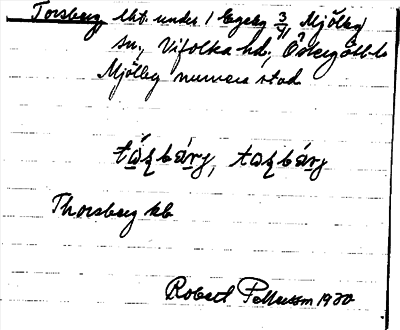 Torsberg lht. under 1 Egeby 3/11 Mjölby
sn., Vifolka hd., Östergötl. l.
Mjölby numera stad
tárbärj, tarbärj
Thorsberg kb
Robert 1930